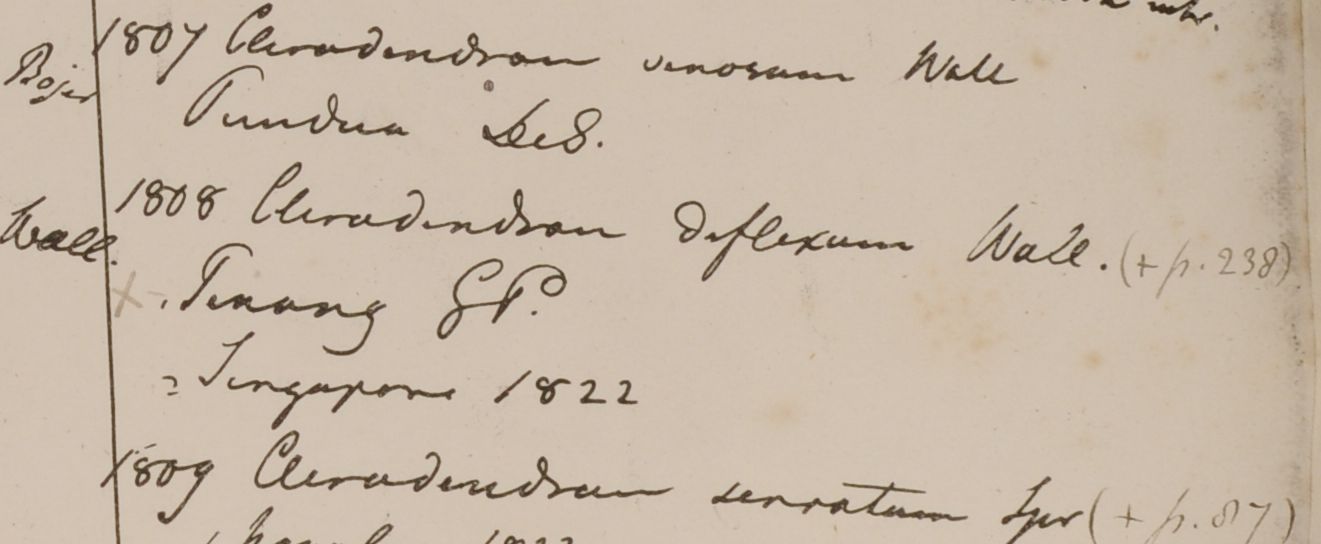 1807 Clerodendron venosum Wall
Bojer
Pundua
1808 Clerodendron deflexum Wall. (+ p. 238)
Wall.
x . Penang GP.
2 Singapore 1822
1809 Clerodendron serratum Spr (+ p. 87)